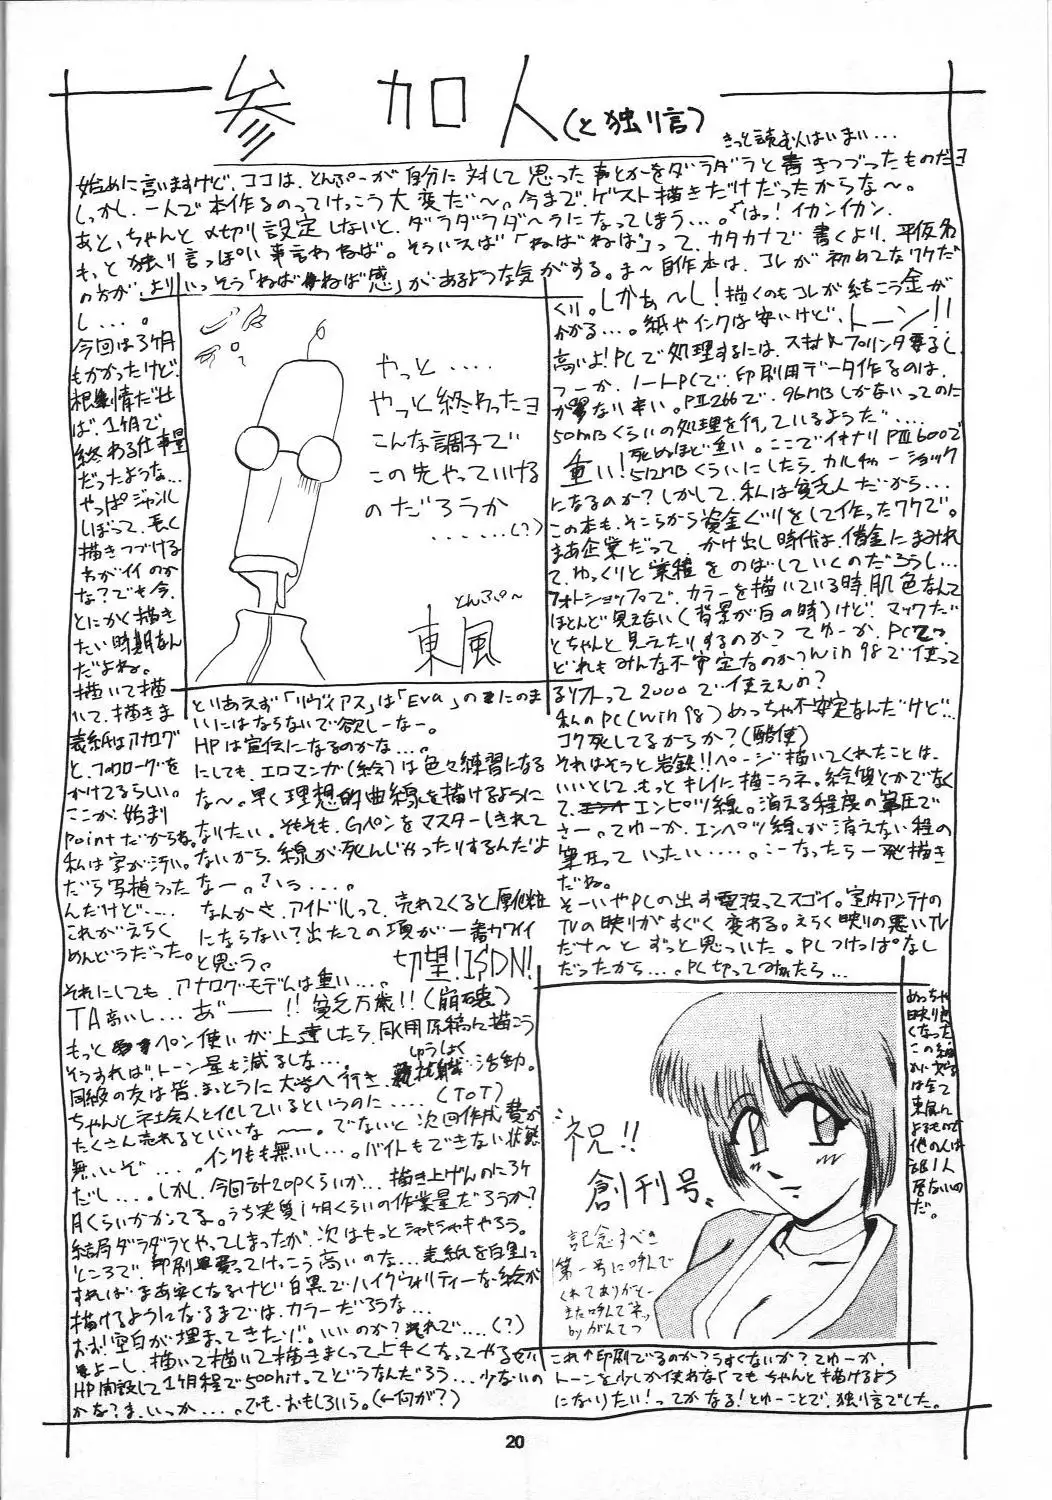 参加人(と独り言)
きっと読む人はいまい...
始めに言いますけど、ココは、とんぷーが自分に対して思った事とかをダラダラと書きつづったものだヨ
しかし、一人で本作るのってけっこう大変だ〜。今まで、ゲスト描きだけだったからな〜。
あと、ちゃんと〆切り設定しないと、ダラダラダ〜ラになってしまう...。はっ!イカンイカン。
もっと独り言っぽい事言わねば。そういえば「ねばねば」って、カタカナで書くより、平仮名
の方が、よりいっそう「ねばねば感」があるような気がする。ま〜自作本は、コレが初めてなワケだ
し....。
今回は3ヶ月
もかかったけど、
根性情だせ
ば、1ヶ月で
終わる仕事量
だったような...
やっぱジャンル
しぼって、長く
描きつづける
わがイイのか
な?でも今、
とにかく描き
たい時期なん
だよね。
描いて描
いて、描きま
表紙はアナログ
と、フロローグを
かけてるらしい。
ここが、始まり
pointだからね。
私は字が汚い。
だら写植うった
んだけど....
これがえらく
めんどうだった。
やっと....
やっと終わったヨ
こんな調子で
この先やっていける
のだろうか
......(?)
とんぷ〜
東風
くり。しかぁ〜し!描くのもコレが結こう金が
かかる...。紙やインクは安いけど、トーン!!
高いよ!PCで処理するには、スキャナ、プリンタ要るし、
つーか、ノートPCで、印刷用データ作るのは、
かなり辛い。PⅡ266で、96MBしかないってのに
50MBくらいの処理を行っているようだ....
死ぬほど重い。ここでイキナリPⅢ600で
重い!512MBくらいにしたら、カルチャーショック
になるのか?しかして、私は貧乏人だから...
この本も、そこらから資金ぐりをして作ったワケで。
まあ企業だって、かけ出し時代は、借金にまみれ
て、ゆっくりと業績をのばしていくのだろうし...
フォトショップで、カラーを描いている時、肌色なんて
ほとんど見えない(背景が白の時)けど、マックだ
とちゃんと見えたりするのか?てゆーか、PCって
どれもみんな不安定なのか?Win98で使って
るソフトって2000で使えんの?
私のPC(Win98)めっちゃ不安定なんだけど...
コク死してるからか?(酷使)
それはそうと岩鉄!!ページ描いてくれたことは、
いいとして、もっとキレイに描こうネ。絵使とかでなく
て、エンピツ線。消える程度の筆圧で
さー。てゆーか、エンペツ線が消えない程の
筆圧っていったい....。こーなったら一発描き
だね。
そーいやPCの出す電波ってスゴイ。室内アンテナの
TVの映りがすぐく変わる。えらく映りの悪いTV
だナ〜とずっと思っていた。PCつけっぱなし
だったから...。PC切ってつけたら...
めっちゃ
映り良
くなった
とりあえず「リヴァイアス」は「Eva」の二のま
いにはならないで欲しーなー。
HPは宣伝になるのかな...。
にしても、エロマンガ(絵)は色々練習になる
な〜。早く理想的曲線を描けるように
なりたい。そもそも、Gペンをマスターしきれて
ないから、線が死んじゃったりするんだよ
なー。さいぅ....。
なんかさ、アイドルって、売れてくると厚化粧
にならない?出たての頃が一番カワイイ
と思う。
切望!ISDN!
それにしても、アナログモデムは重い...。
TA高いし...あ゛ー!!貧乏万歳!!(崩壊)
もっとペン使いが上達したら、B4用原稿に描こう
そうすれば、トーン量も減るしな...
同級の友は皆、まっとうに大学へ行き、就職活動。
しゅうしょく
ちゃんと社会人と化しているというのに....(ToT)
たくさん売れるといいな〜。でないと次回作成費が
無いぞ....。インクも無いし...。バイトもできない状態
だし....。しかし、今回計20Pくらいか...描き上げんのに3ヶ
月くらいかかってる。うち実質1ヶ月くらいの作業量だろうか?
結局ダラダラとやってしまったが、次はもっとシャキシャキやろう。
ところで、印刷費ってけっこう高いのな...表紙を白黒に
すれば、まあ安くなるけど白黒でハイクウォリティーな絵が
描けるようになるまでは、カラーだろうな...
おお!空白が埋まってきたゾ。いいのか?それで....(?)
よーし、描いて描いて描きまくって上手くなってやるぜい
HP開設して1ヶ月程で500hitってどうなんだろう...少ないの
かな?ま、いっか...。でも、おもしろいう。(←何が?)
祝!!
創刊号。
記念すべき
第一号に呼んで
くれてありがとー
また呼んでネ。
by がんてつ
この線
から文字
は全て
東風に
よるもので
他の人は
部1人
居ないの
だ。
これ↑印刷でるのか?うすくないか?てゆーか、
トーンを少しか使わなくてもちゃんと描けるよう
になりたい!ってかなる!とゆーことで、独り言でした。
20